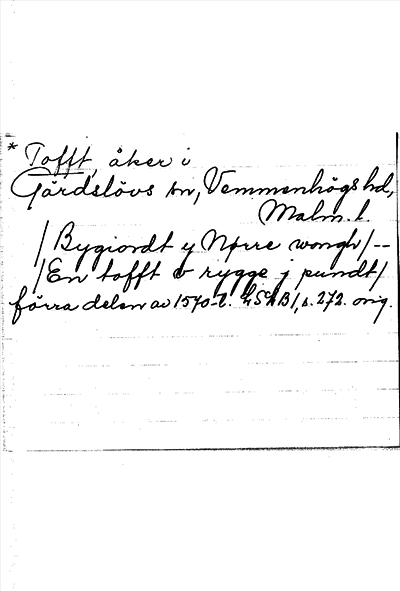 * Tofft, åker i
Gärdslövs sn, Vemmenhögs hd,
Malm. l.
/Bygiordt y Nørre wongh/--
/En tofft 5 rygge j pundt/
förra delen av 1570-t. LSÄB 1, s. 272. orig.